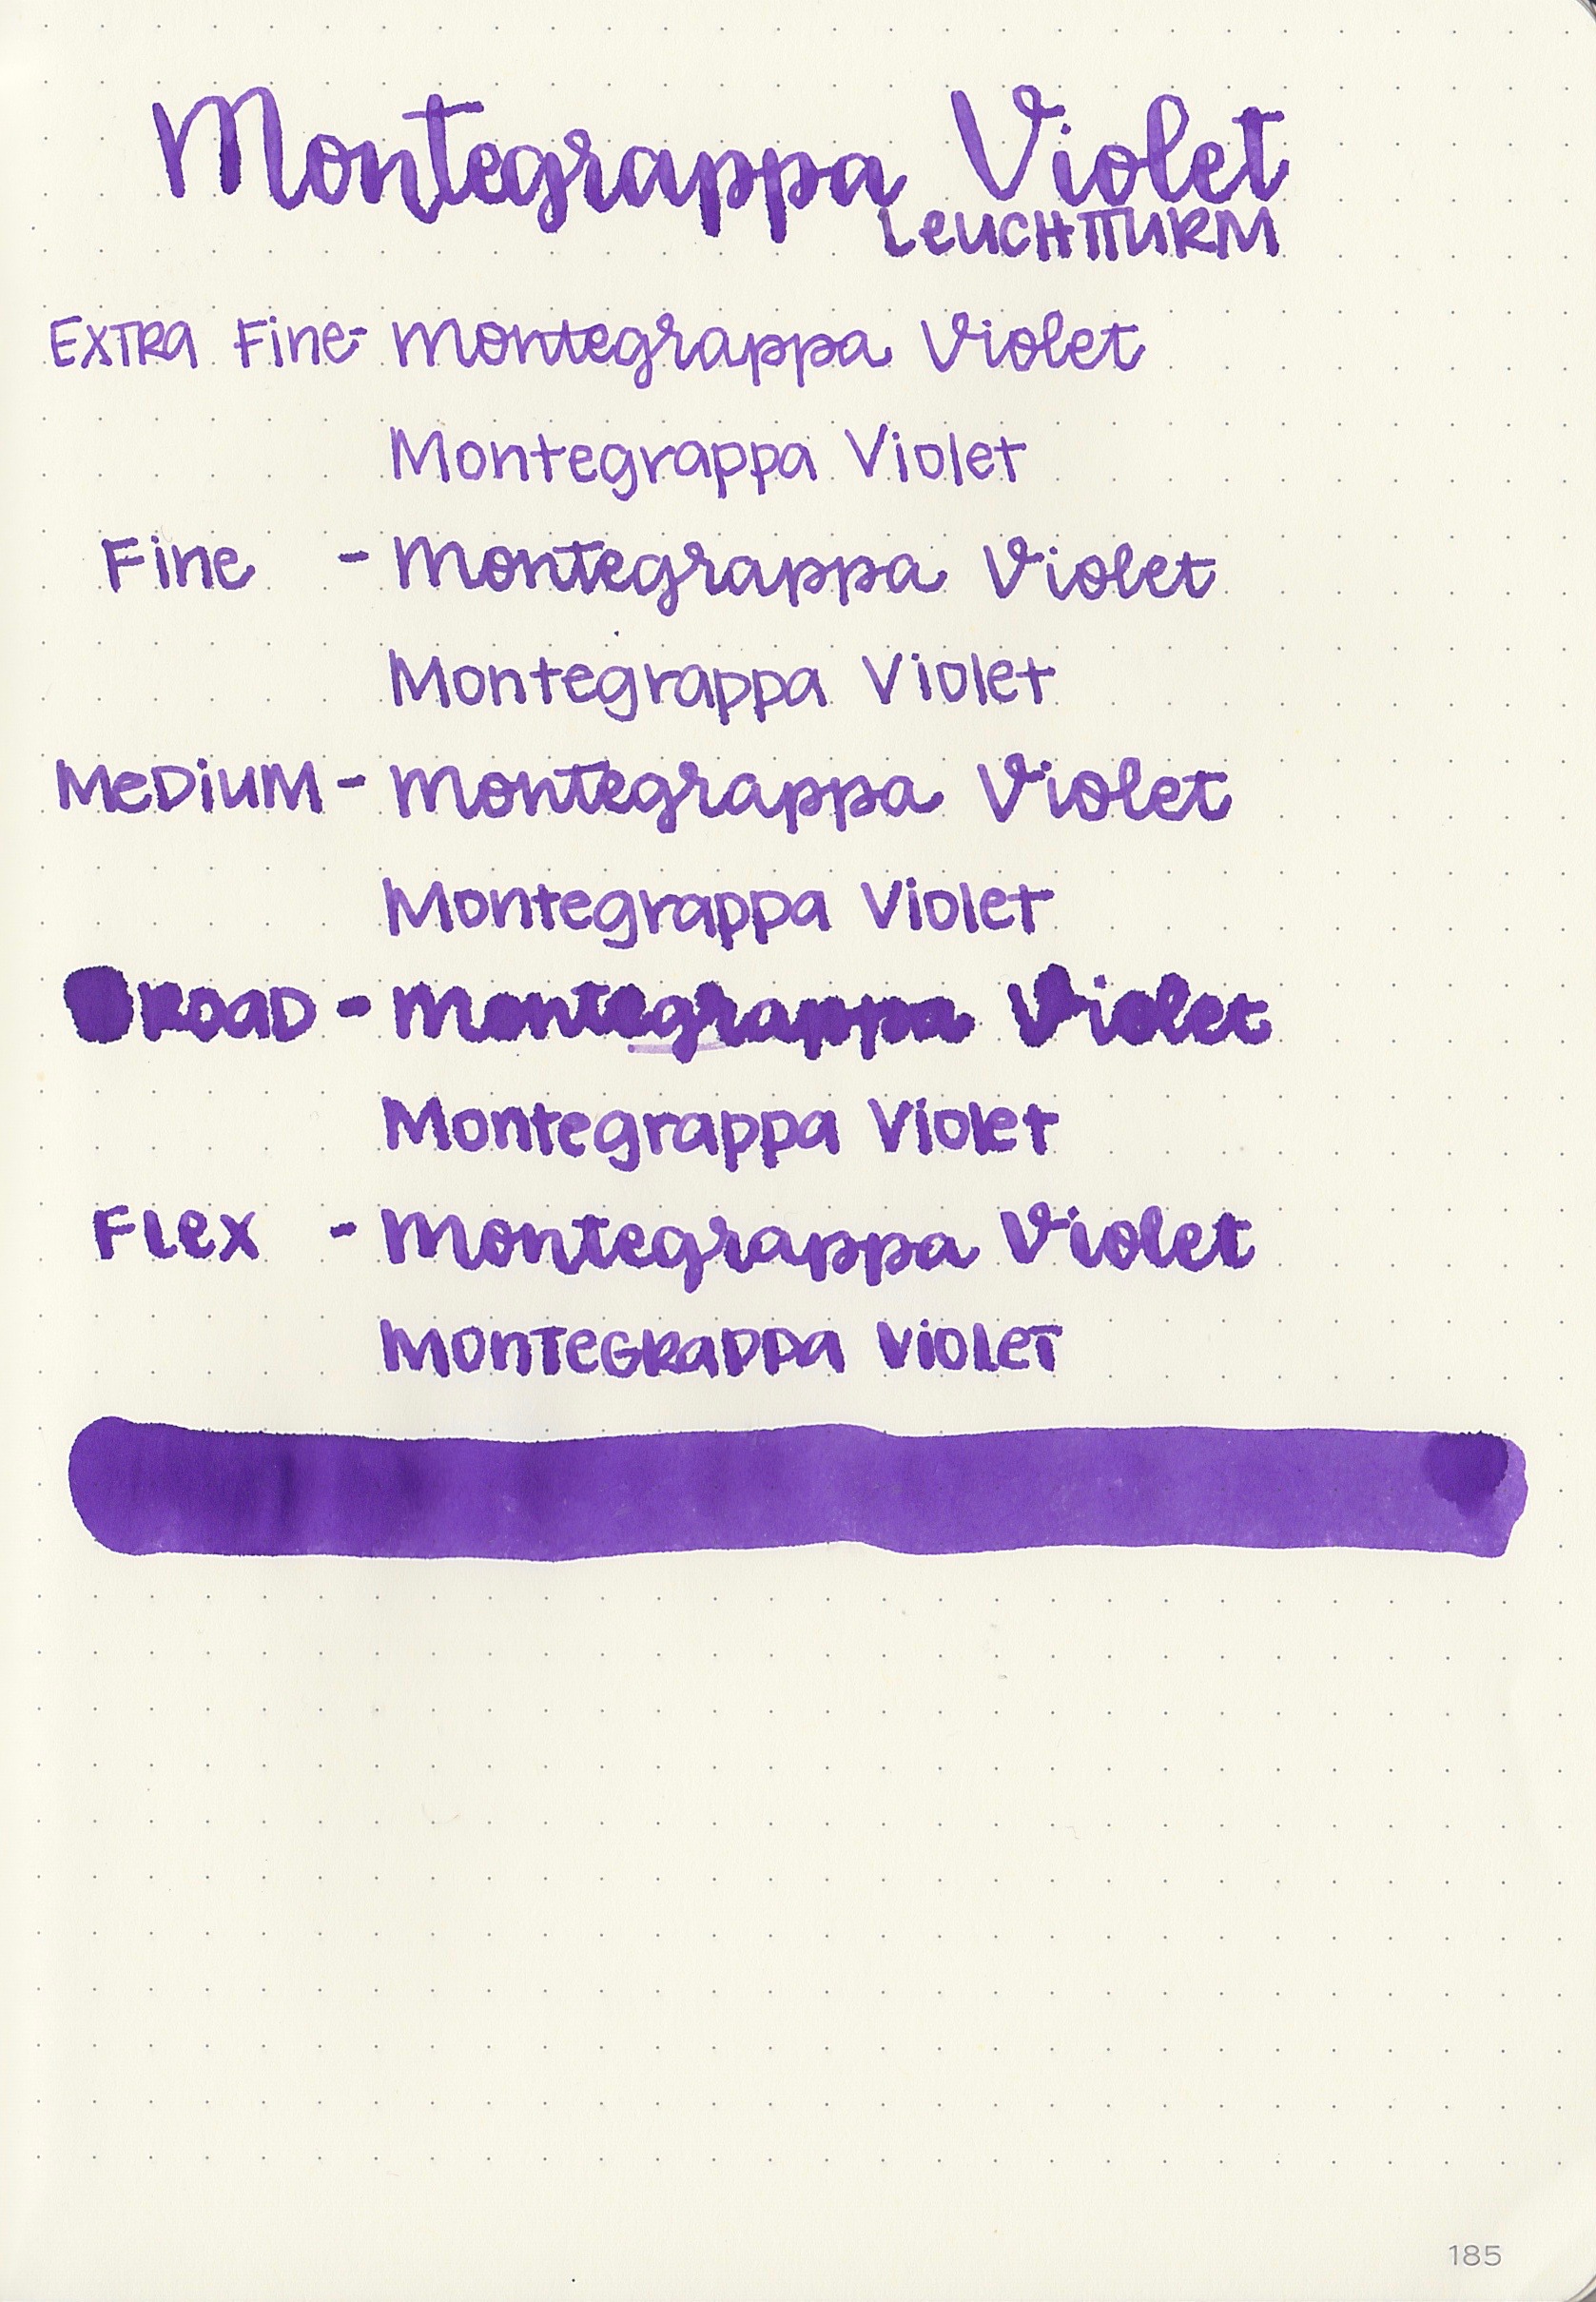 Montegrappa Violet
LeUCHTTURM
ExTRa Fine- Montegrappa Violet
Montegrappa Violet
Fine - Montegrappa Violet
Montegrappa Violet
MeDiUM - Montegrappa Violet
Montegrappa Violet
BROaD - Montegrappa Violet
Montegrappa Violet
FLex - Montegrappa Violet
MonTeGRaPPa VioLeT
185